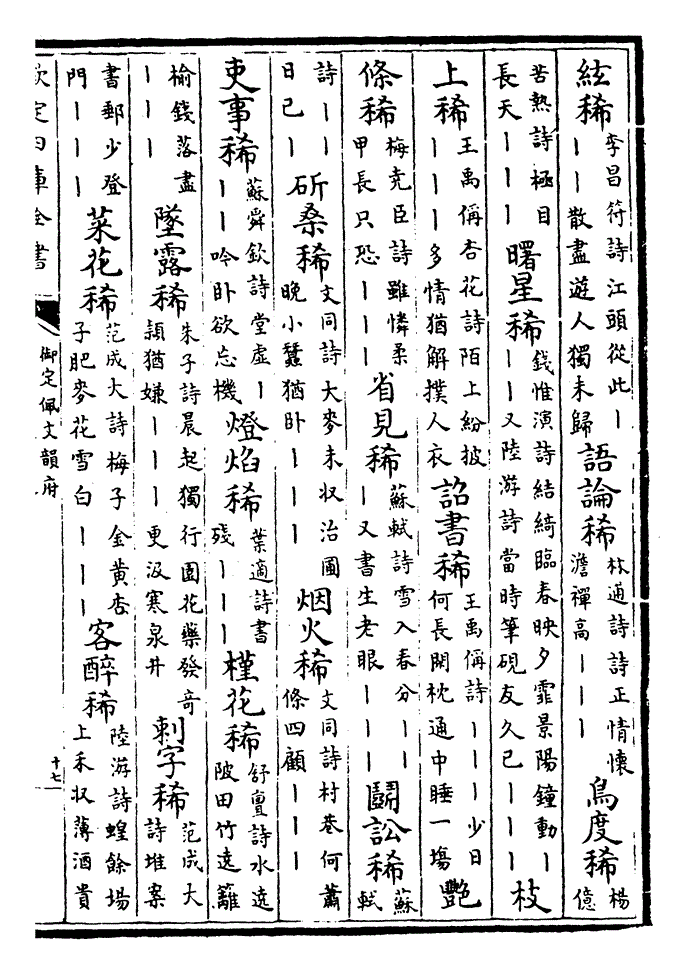 絃稀李昌符詩江頭從此丨丨丨散盡遊人獨未歸語論稀林逋詩詩正情懷澹禪高丨丨丨鳥度稀楊億
苦熱詩極目長天丨丨丨曙星稀錢惟演詩結綺臨春映夕霏景陽鐘動丨丨丨又陸游詩當時筆硯友久已丨丨丨枝
上稀王禹偁杏花詩陌上紛披丨丨丨多情猶解撲人衣詔書稀王禹偁詩丨丨丨少日何長閑枕通中睡一塲艷
條稀梅堯臣詩雖憐柔甲長只恐丨丨丨省見稀蘇軾詩雪入春分丨丨丨又書生老眼丨丨丨鬭訟稀蘇軾
詩丨丨日已丨斫桑稀文同詩大麥未収治圃晚小蠶猶卧丨丨丨烟火稀文同詩村巷何蕭條四顧丨丨丨
吏事稀蘇舜欽詩堂虛丨丨丨吟卧欲忘機燈焰稀葉適詩書殘丨丨丨槿花稀舒亶詩水遶陂田竹遶籬
榆錢落盡丨丨丨墜露稀朱子詩晨起獨行園花藥發奇頴猶嫌丨丨丨更汲寒泉井刺字稀范成大詩堆案
書郵少登門丨丨丨菜花稀范成大詩梅子金黄杏子肥麥花雪白丨丨丨客醉稀陸游詩蝗餘塲上禾収薄酒貴
欽定四庫全書
御定佩文韻府
十七